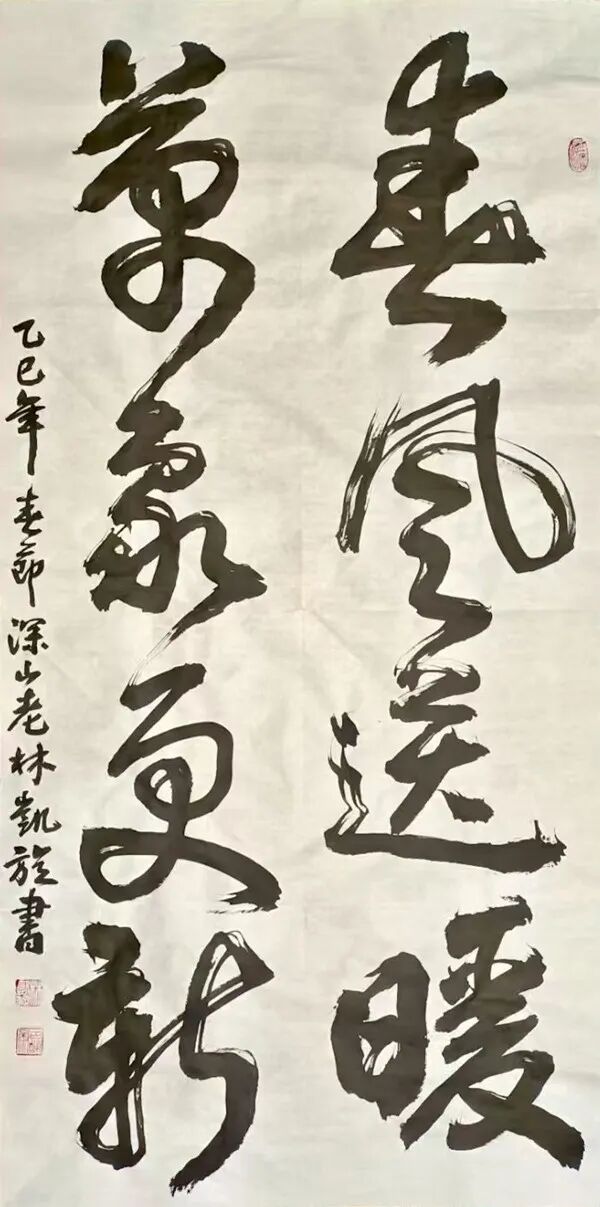 春风送暖
萬象更新
乙巳年春节深山老林凯旋書